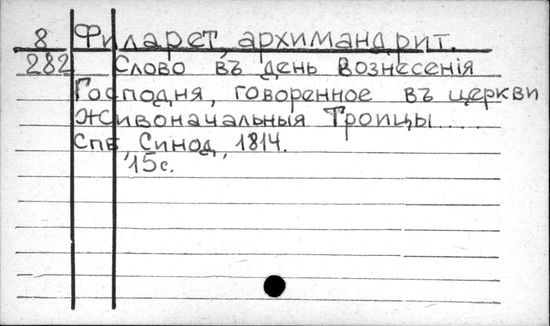 8 Филарет, архимандрит.
282 Слово въ день Вознесенія
Господня, говоренное въ церкви
Живоначальныя Троицы.....
Спб, Синод, 1814.
15с.